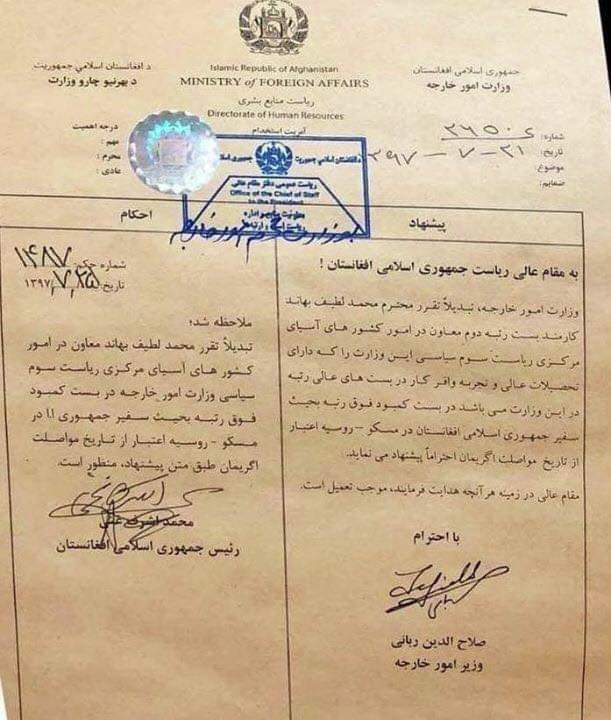 د افغانستان اسلامي جمهوریت
د بهرنیو چارو وزارت
Islamic Republic of Afghanistan
MINISTRY of FOREIGN AFFAIRS
ریاست منابع بشری
Directorate of Human Resources
آمریت استخدام
جمهوری اسلامی افغانستان
وزارت امور خارجه
درجه اهمیت
مهم :
محرم :
عادی :
شماره:
تاریخ:
موضوع:
ضمایم:
د افغانستان اسلامي جمهوریت
جمهوری اسلامی
ریاست عمومی دفتر مقام عالی
Office of the Chief of Staff
to the President
پیشنهاد
به مقام عالی ریاست جمهوری اسلامی افغانستان !
وزارت امور خارجه، تبدیلاً تقرر محترم محمد لطیف بهاند
کارمند بست رتبه دوم معاون در امور کشور های آسیای
مرکزی ریاست سوم سیاسی این وزارت را که دارای
تحصیلات عالی و تجربه وافر کار در بست های عالی رتبه
در این وزارت می باشد در بست کمبود فوق رتبه بحیث
سفیر جمهوری اسلامی افغانستان در مسکو – روسیه اعتبار
از تاریخ مواصلت اگریمان احتراماً پیشنهاد می نماید.
مقام عالی در زمینه هر آنچه هدایت فرمایند، موجب تعمیل است.
با احترام
صلاح الدین ربانی
وزیر امور خارجه
احکام
شماره حکم: ۱۴۸۷
تاریخ: ۱۳۹۷/۷/۲۵
ملاحظه شد؛
تبدیلاً تقرر محمد لطیف بهاند معاون در امور
کشور های آسیای مرکزی ریاست سوم
سیاسی وزارت امور خارجه در بست کمبود
فوق رتبه بحیث سفیر جمهوری ا.ا در
مسکو - روسیه اعتبار از تاریخ مواصلت
اگریمان طبق متن پیشنهاد، منظور است.
محمد اشرف غنی
رئیس جمهوری اسلامی افغانستان